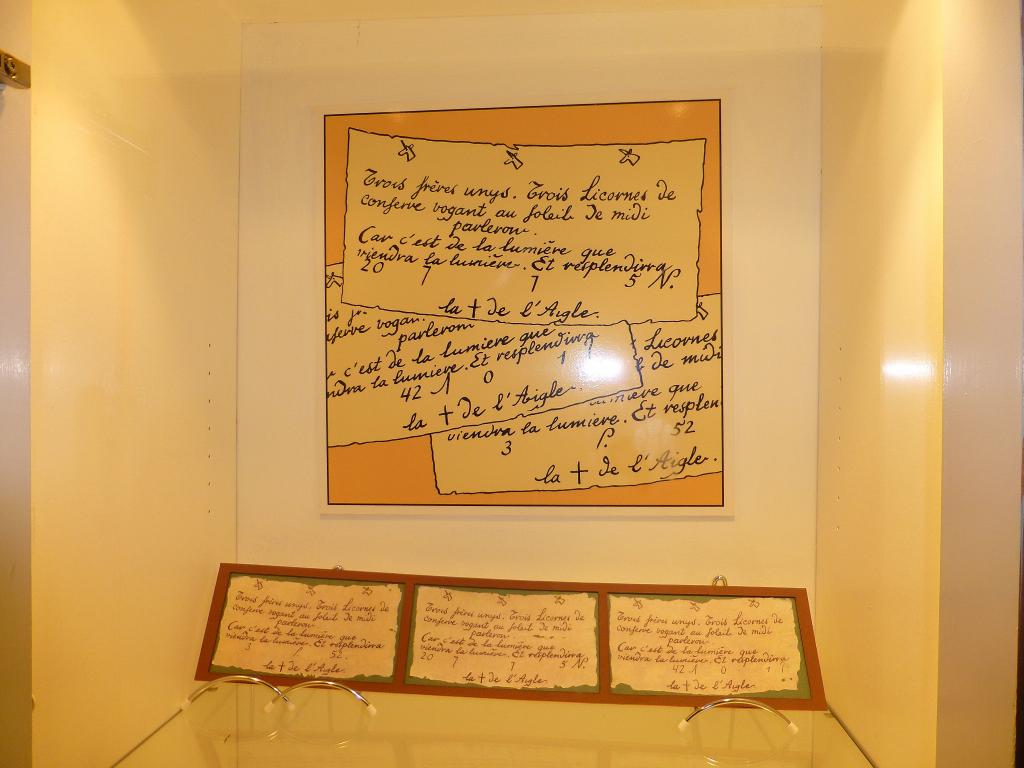 Trois frères unys. Trois Licornes de
conserve vogant au soleil de midi
parleron.
Car c'est de la lumière que
viendra la lumière. Et resplendirra
20 7 7 5 N.
la † de l'Aigle.
conserve vogan.
parleron
c'est de la lumiere que
ndra la lumiere. Et resplendirra
42 1 0 1
la † de l'Aigle.
Licornes
de midi
lumiere que
viendra la lumiere. Et resplen
3 52
la † de l'Aigle.
Trois frères unys. Trois Licornes de
conserve vogant au soleil de midi
parleron.
Car c'est de la lumière que
viendra la lumière. Et resplendirra
3 52
la † de l'Aigle.
Trois frères unys. Trois Licornes de
conserve vogant au soleil de midi
parleron.
Car c'est de la lumière que
viendra la lumière. Et resplendirra
20 7 7 5 N.
la † de l'Aigle.
Trois frères unys. Trois Licornes de
conserve vogant au soleil de midi
parleron.
Car c'est de la lumière que
viendra la lumière. Et resplendirra
42 1 0 1
la † de l'Aigle.